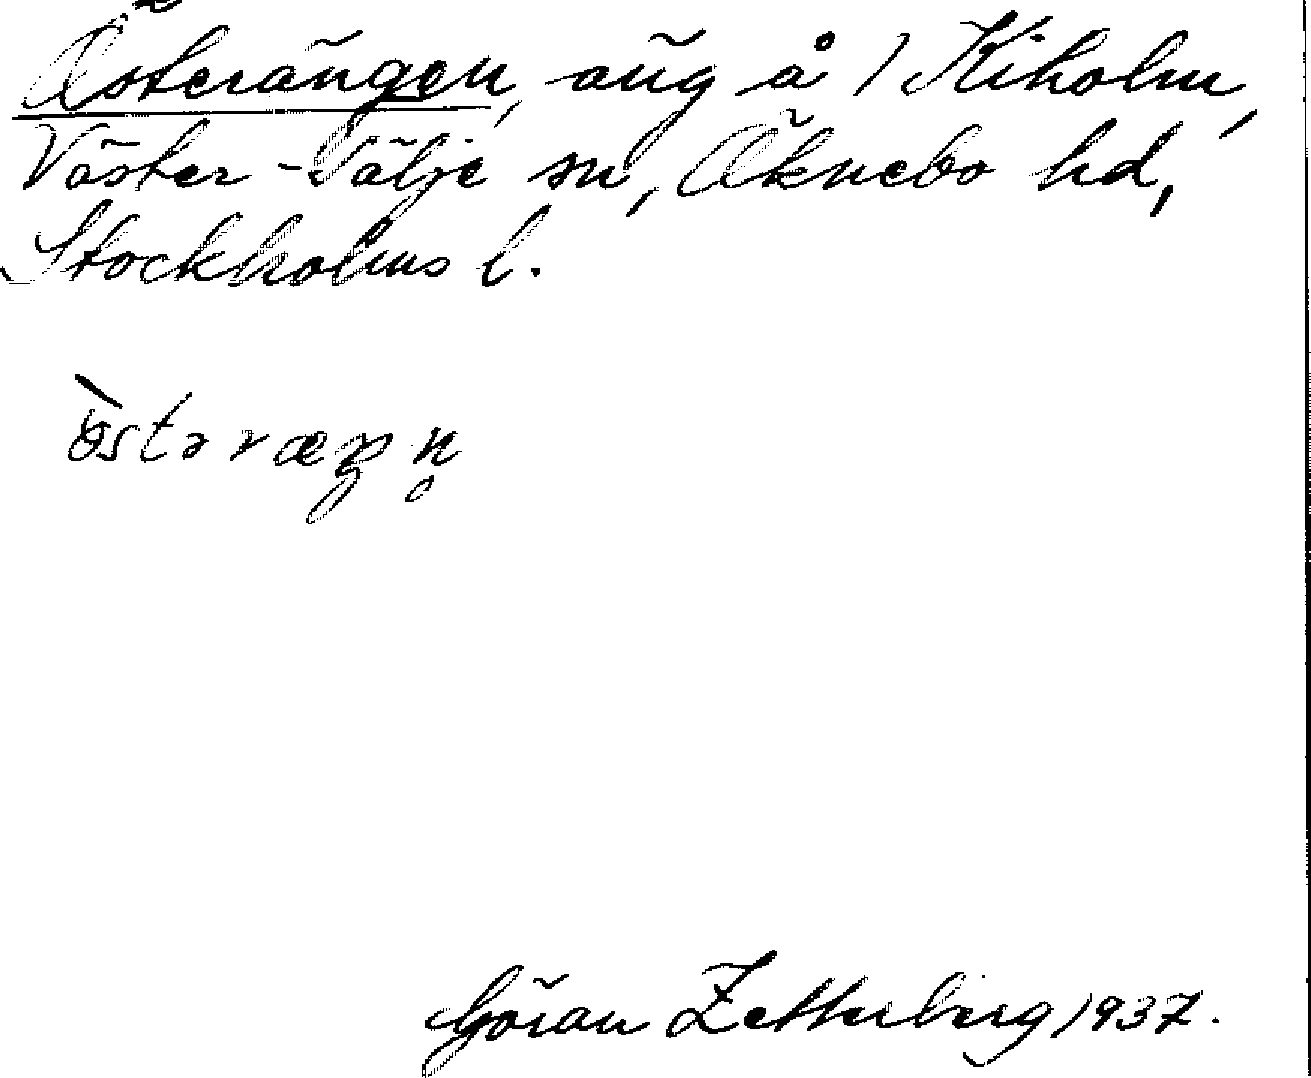 Österängen, äng å / Kiholm,
Väster-Tälje sn, Öknebo hd,
Stockholms l.
Göran Zetterberg 1937.